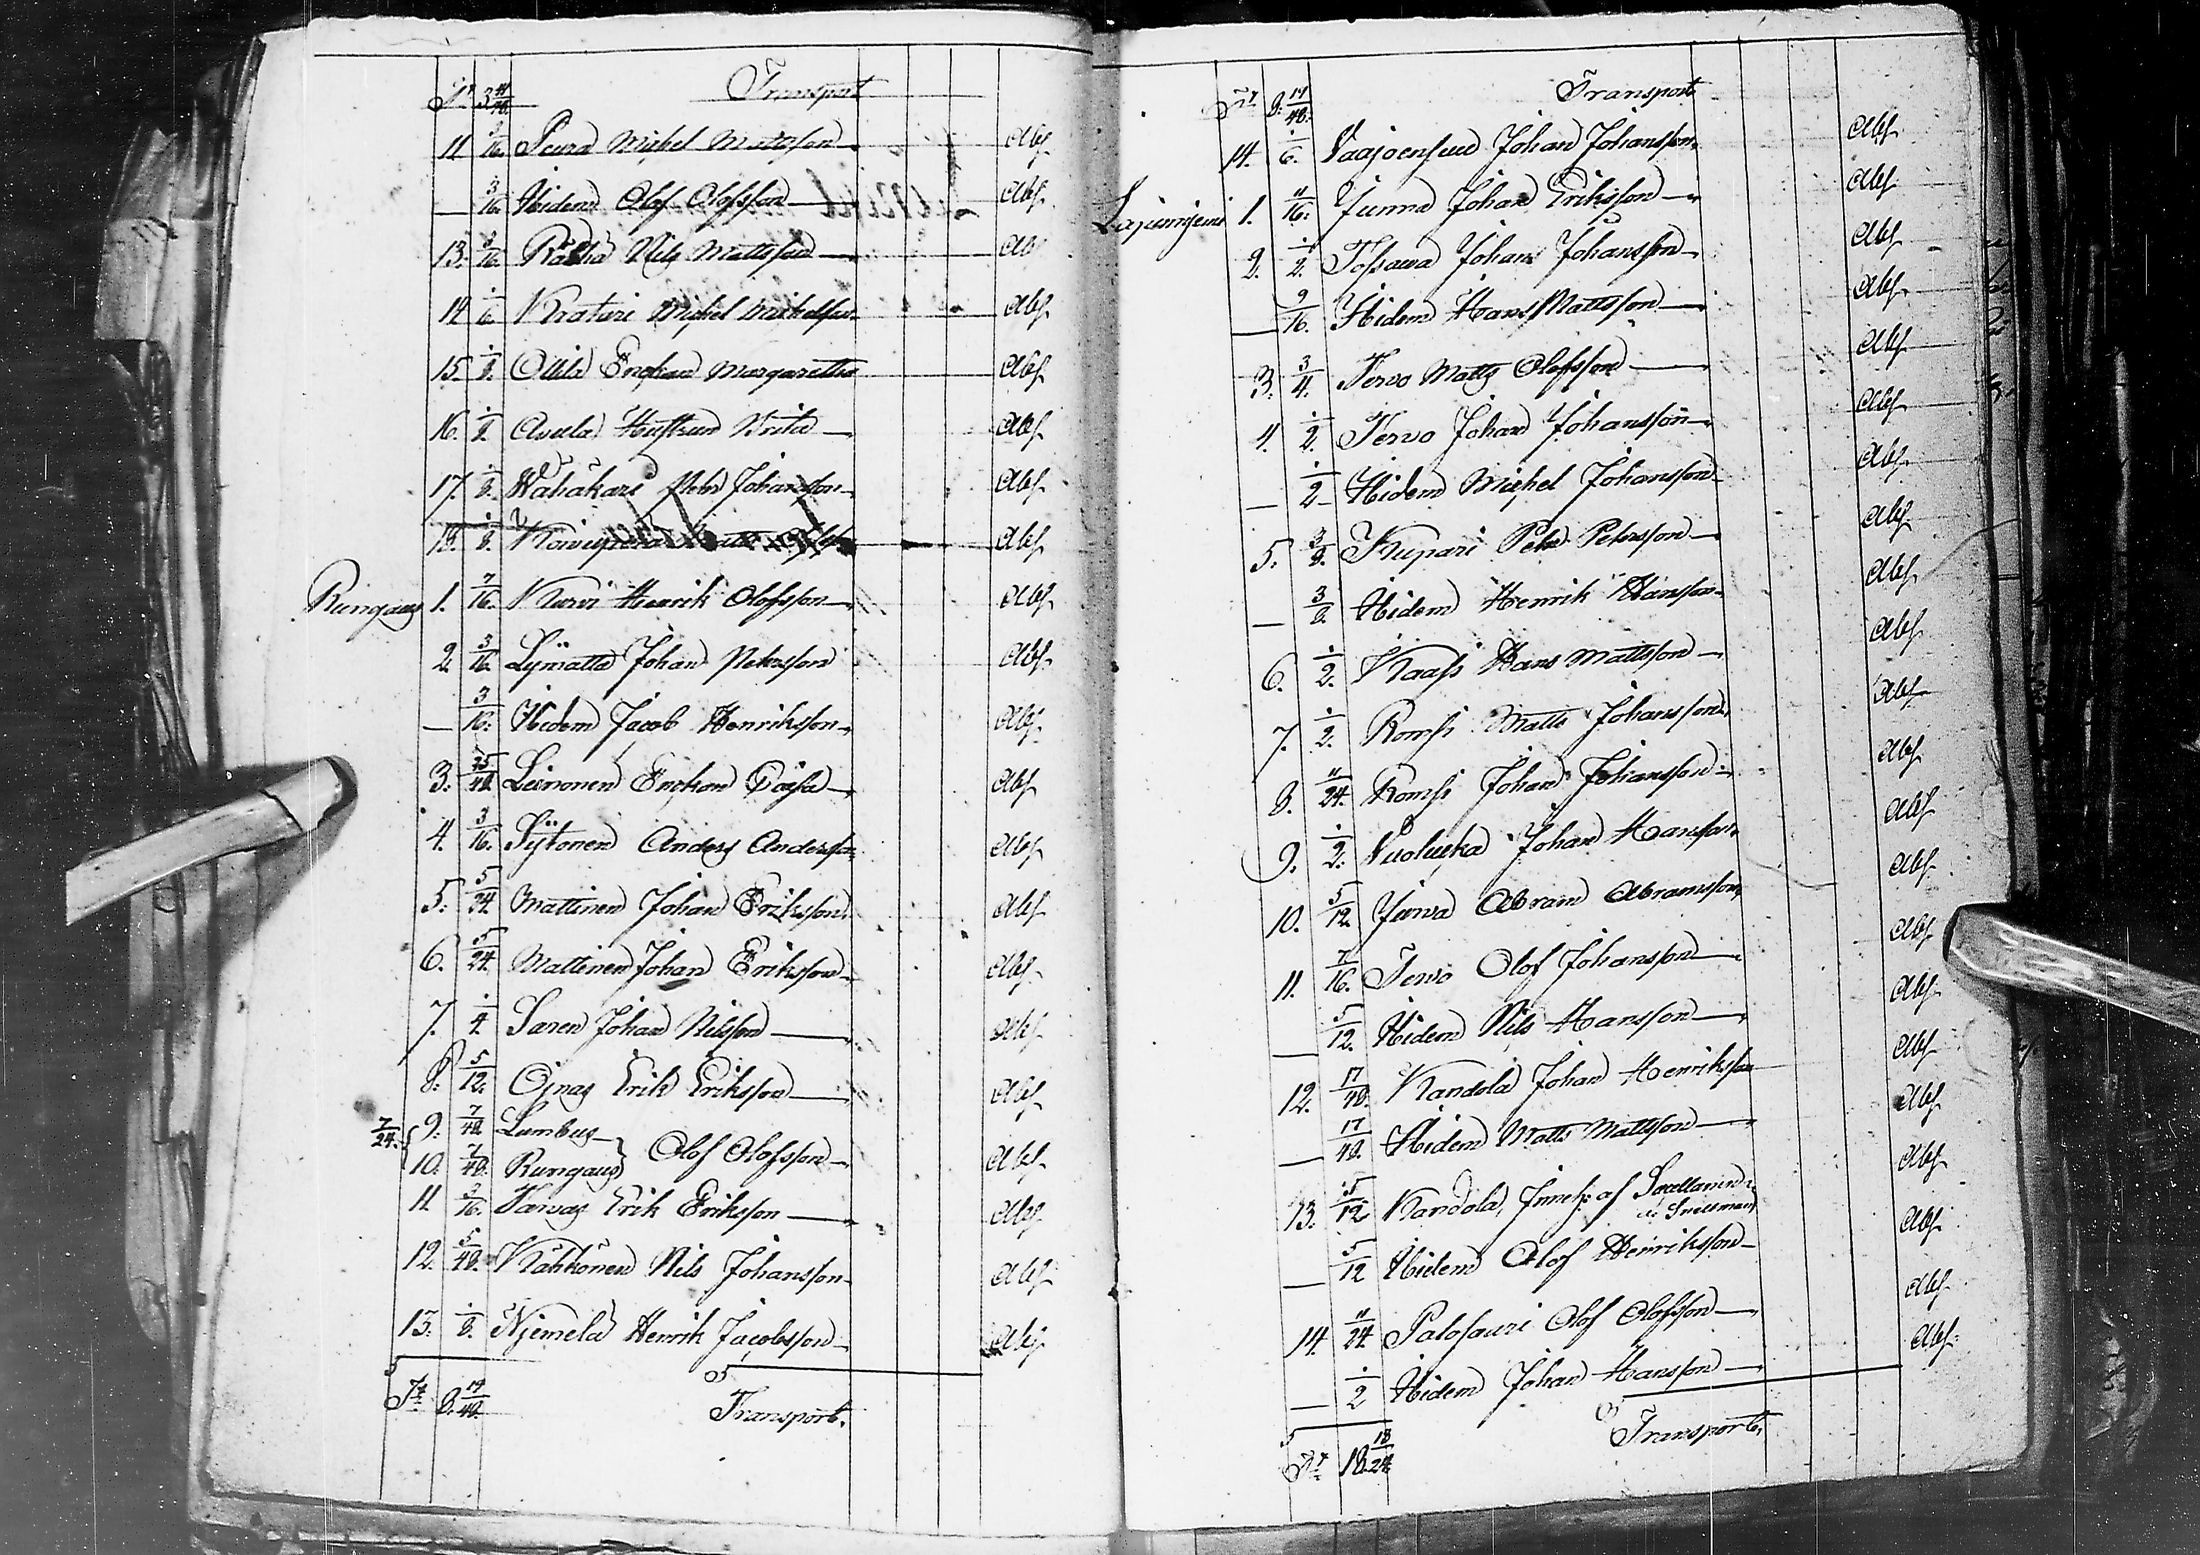 Tr 3 11/48 Transport
11 3/16. Peura Michel Mattsson Abf
— 3/16. Hidem Olof Olofsson Abf
13. 3/16. Räihä Nils Mattsson Ab
14 1/6 Kraturi Michel Michelsson Abf
15. 1/8. Ollila Enckan Margaretha Abf
16. 1/8. Avela Hustrun Brita Abf
17. 1/8. Wähäkari Petter Johansson Abf
18. 1/8. Abf
Rungaus 1. 7/16. Kurvi Henrik Olofsson Abf
2 3/16. Lÿmatta Johan Petersson Abf
— 3/16. Hidem Jacob Henriksson Abf
3. 25/48 Leinonen Enckan Caisa Abf
4. 3/16. Sÿtonen Anders Andersson Abf
5. 5/24. Mattinen Johan Eriksson Abf
6. 5/24. Mattinen Johan Eriksson Abf
7. 1/4. Saren Johan Nilsson Abf
8. 5/12. Ojnas Erik Eriksson Abf
7/24. 9. 7/48 Lumbus
10. 7/48. Rungaus Olof Olofsson Abf
11 3/16. Karvas Erik Eriksson Abf
12. 5/48. Kähkönen Nils Johansson Abf
13. 1/8. Njemelä Henrik Jacobsson Abf
Tr 8. 17/48 Transport.
Tr 8. 17/48. Transport
14. 1/6. Vaajoensuu Johan Johansson Abf
Lajumjemi 1. 11/16. Junna Johan Eriksson Abf
2. 1/2. Tossawa Johan Johansson Abf
— 9/16. Hidem Hans Mattsson Abf
3. 3/4. Tervo Matts Olofsson Abf
4. 1/2. Tervo Johan Johansson Abf
— 1/2 Hidem Michel Johansson Abf
5. 3/8. Kupari Peter Petersson Abf
— 3/8. Hidem Henrik Hansson Abf
6. 1/2. Kaass Hans Mattsson Abf
7. 1/2. Romsi Matts Johansson Abf
8. 11/24. Romsi Johan Johansson Abf
9. 1/2. Vuolukka Johan Hansson Abf
10. 5/12 Jurva Abram Abramsson Abf
11. 7/16. Tervo Olof Johansson Abf
— 5/12. Hidem Nils Hansson Abf
12. 17/48. Kandola Johan Henriksson Abf
— 17/48. Hidem Matts Mattsson Abf
13. 5/12 Kandola, Inneh: af Snellman Abf
— 5/12 Hidem Olof Henriksson Abf
14. 11/24 Palosaari Olof Olofsson Abf
— 1/2 Hidem Johan Hansson Abf.
Tr 18. 13/24. Transport.